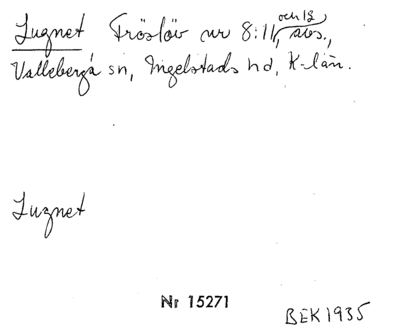 Lugnet Fröslöv nr 8:11, och 12 avs.,
Vallebergá sn, Ingelstads hd, K-län.
Lugnet
Nr 15271
BEK 1935